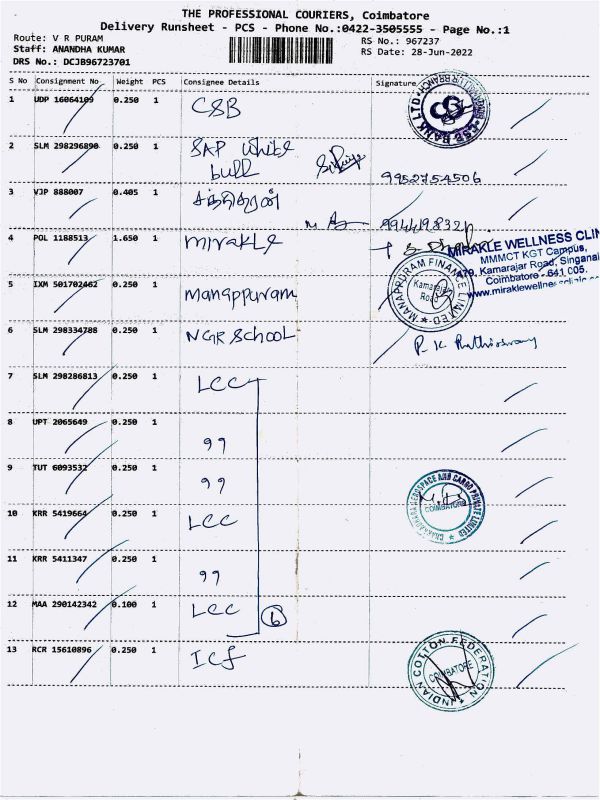 THE PROFESSIONAL COURIERS, Coimbatore
Delivery Runsheet - PCS - Phone No.:0422-3505555 - Page No.:1
Route: V R PURAM
RS No.: 967237
Staff: ANANDHA KUMAR
RS Date: 28-Jun-2022
DRS No.: DCJB96723701
S No Consignment No Weight PCS Consignee Details Signature
1 UDP 16064109 0.250 1 CSB
CSB BANK LTD
2 SLM 298296890 0.250 1 SAP White
bull
9952754506
3 VJP 888007 0.405 1
4 POL 1188513 1.650 1 mirakle
MIRAKLE WELLNESS CLIN
MMMCT KGT Campus,
479, Kamarajar Road, Singanal
Coimbatore - 641 005.
www.miraklewellnessclinic.co
5 IXM 501702462 0.250 1 manappuram
MANAPPURAM FINANCE LIMITED
Kamarajar
Road
6 SLM 298334788 0.250 1 NGR School
7 SLM 298286813 0.250 1 LCC
8 UPT 2065649 0.250 1 99
9 TUT 6093532 0.250 1 99
10 KRR 5419664 0.250 1 LCC
AEROSPACE AND CARGO PRIVATE LIMITED
COIMBATORE
11 KRR 5411347 0.250 1 99
12 MAA 290142342 0.100 1 LCC 6
13 RCR 15610896 0.250 1 Icf
INDIAN COTTON FEDERATION
COIMBATORE